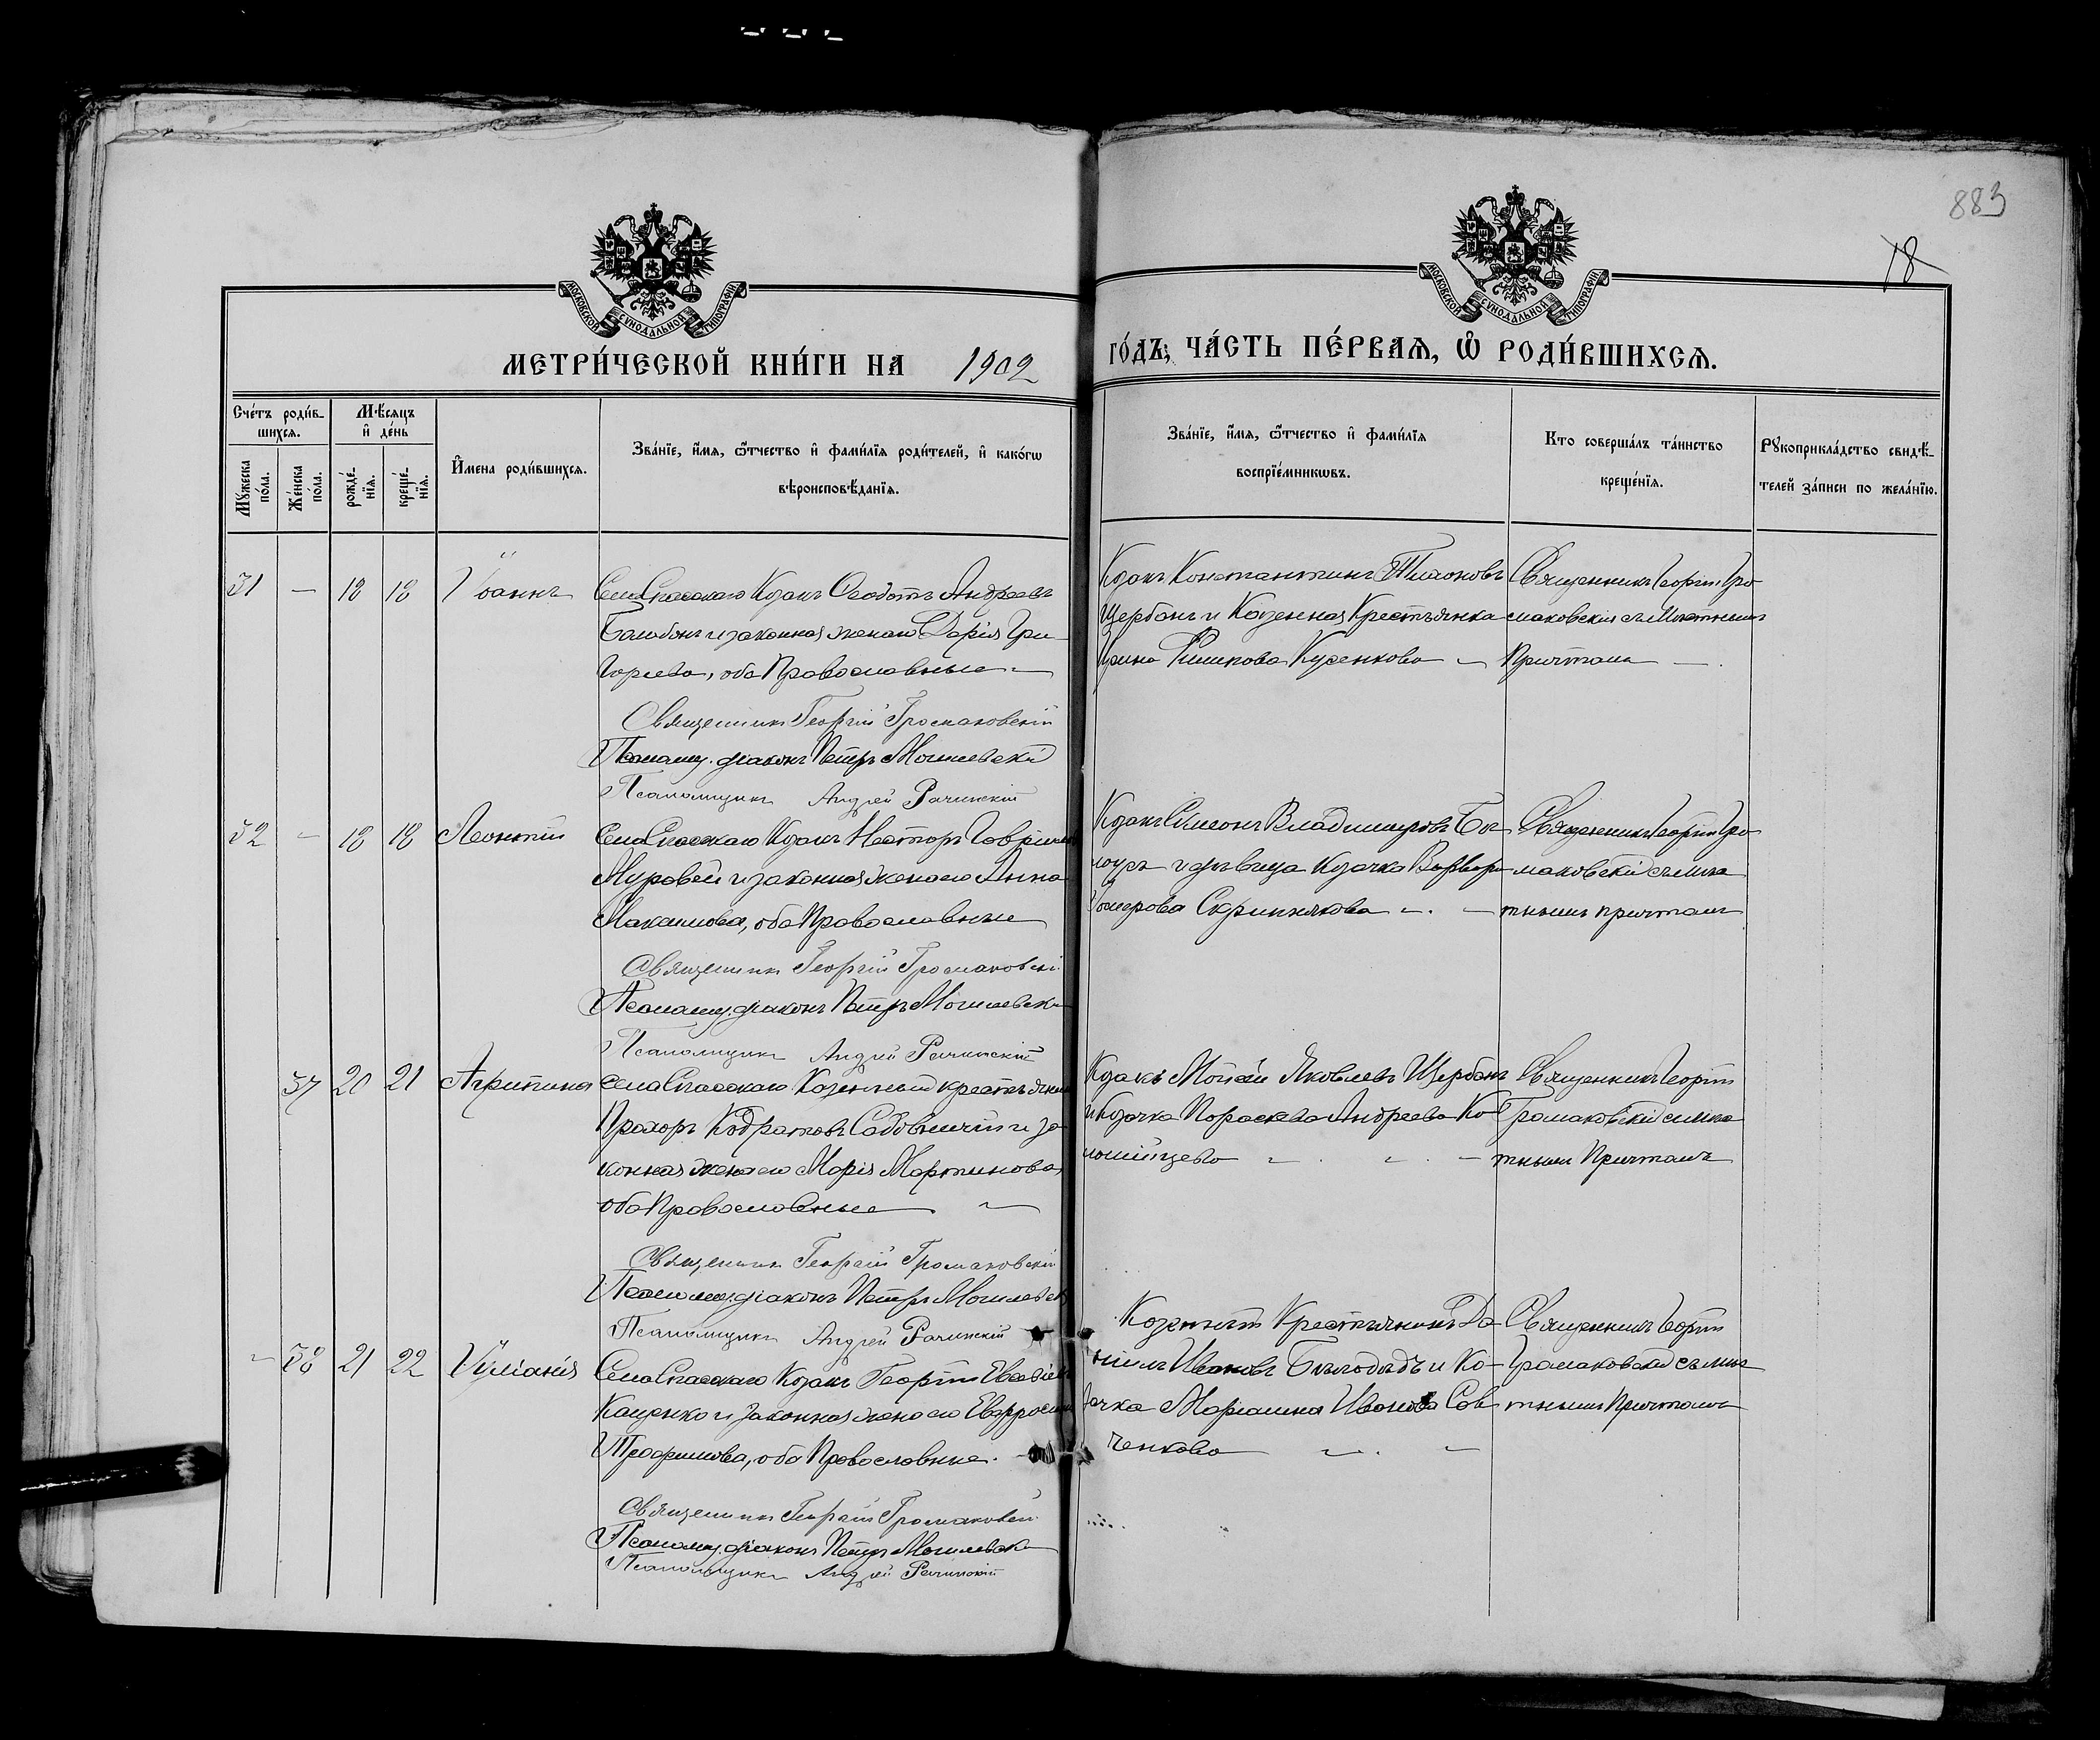 883
18
МОСКОВСКОЙ СѴНОДАЛЬНОЙ ТИПОГРАФІИ
МОСКОВСКОЙ СѴНОДАЛЬНОЙ ТИПОГРАФІИ
МЕТРИ́ЧЕСКОЙ КНИ́ГИ НА 1902 ГО́ДЪ, ЧА́СТЬ ПЕ́РВАѦ, Ѡ҆ РОДИ́ВШИХСѦ.
Сче́тъ роди́вшихсѧ.
Мꙋ́жеска по́ла.
Же́нска по́ла.
Мѣ́сѧцъ и҆ де́нь
рожде́нїѧ.
креще́нїѧ.
И҆мена роди́вшихсѧ.
Зва́нїе, и҆́мѧ, ѻ҆́тчество и҆ фами́лїѧ роди́телей, и҆ како́гѡ
вѣроисповѣ́данїѧ.
Зва́нїе, и҆́мѧ, ѻ҆́тчество и҆ фами́лїѧ
воспрїе́мникѡвъ.
Кто соверша́лъ та́инство
креще́нїѧ.
Рꙋкоприкла́дство свидѣ́-
телей за́писи по жела́нїю.
31 — 18 18 Іоаннъ
Села Спасскаго Козакъ Ѳеодотъ Андреевъ
Балабанъ и законная жена его Дарія Гри-
горьева, оба Православные
Священникъ Георгій Громаковскій
Псаломщ. діаконъ Петръ Могилевскій
Псаломщикъ Андрей Рачинскій
Козакъ Константинъ Тихоновъ
Щербань и Казенная Крестьянка
Кусенкова
Священникъ Георгій Гро-
маковскій съ Мѣстнымъ
Причтомъ
32 - 18 18 Леонтій
Села Спасскаго Козакъ Несторъ
Муравей и законная жена его Анна
оба Православные
Священникъ Георгій Громаковскій
Псаломщ. діаконъ Петръ Могилевскій
Псаломщикъ Андрей Рачинскій
Козакъ Симеонъ Владимировъ
и дѣвица Козачка
Скринникова
Священникъ Георгій Гро-
маковскій съ мѣс-
тнымъ причтомъ
37 20 21 Агрипина
Села Спасскаго Казенный крестьянинъ
Прохоръ Кодратовъ Садовничій и за-
конная жена его Марія Мартинова
оба Православные
Священникъ Георгій Громаковскій
Псаломщ. діаконъ Петръ Могилевскій
Псаломщикъ Андрей Рачинскій
Козакъ Мойсей Яковлевъ Щербань
и Козачка Параскева Андреева Ко-
ломійцева
Священникъ Георгій
Громаковскій съ мѣс-
тнымъ Причтомъ
- 38 21 22 Іуліанія
Села Спасскаго Козакъ Георгій
Каценко и законная жена его
Трофимова, оба Православные.
Священникъ Георгій Громаковскій
Псаломщ. діаконъ Петръ Могилевскій
Псаломщикъ Андрей Рачинскій
Казенный Крестьянинъ Да-
ніилъ Ивановъ Бѣлодѣдъ и Ко-
зачка Маріамна Иванова Сав-
ченкова
Священникъ Георгій
Громаковскій съ мѣс-
тнымъ Причтомъ